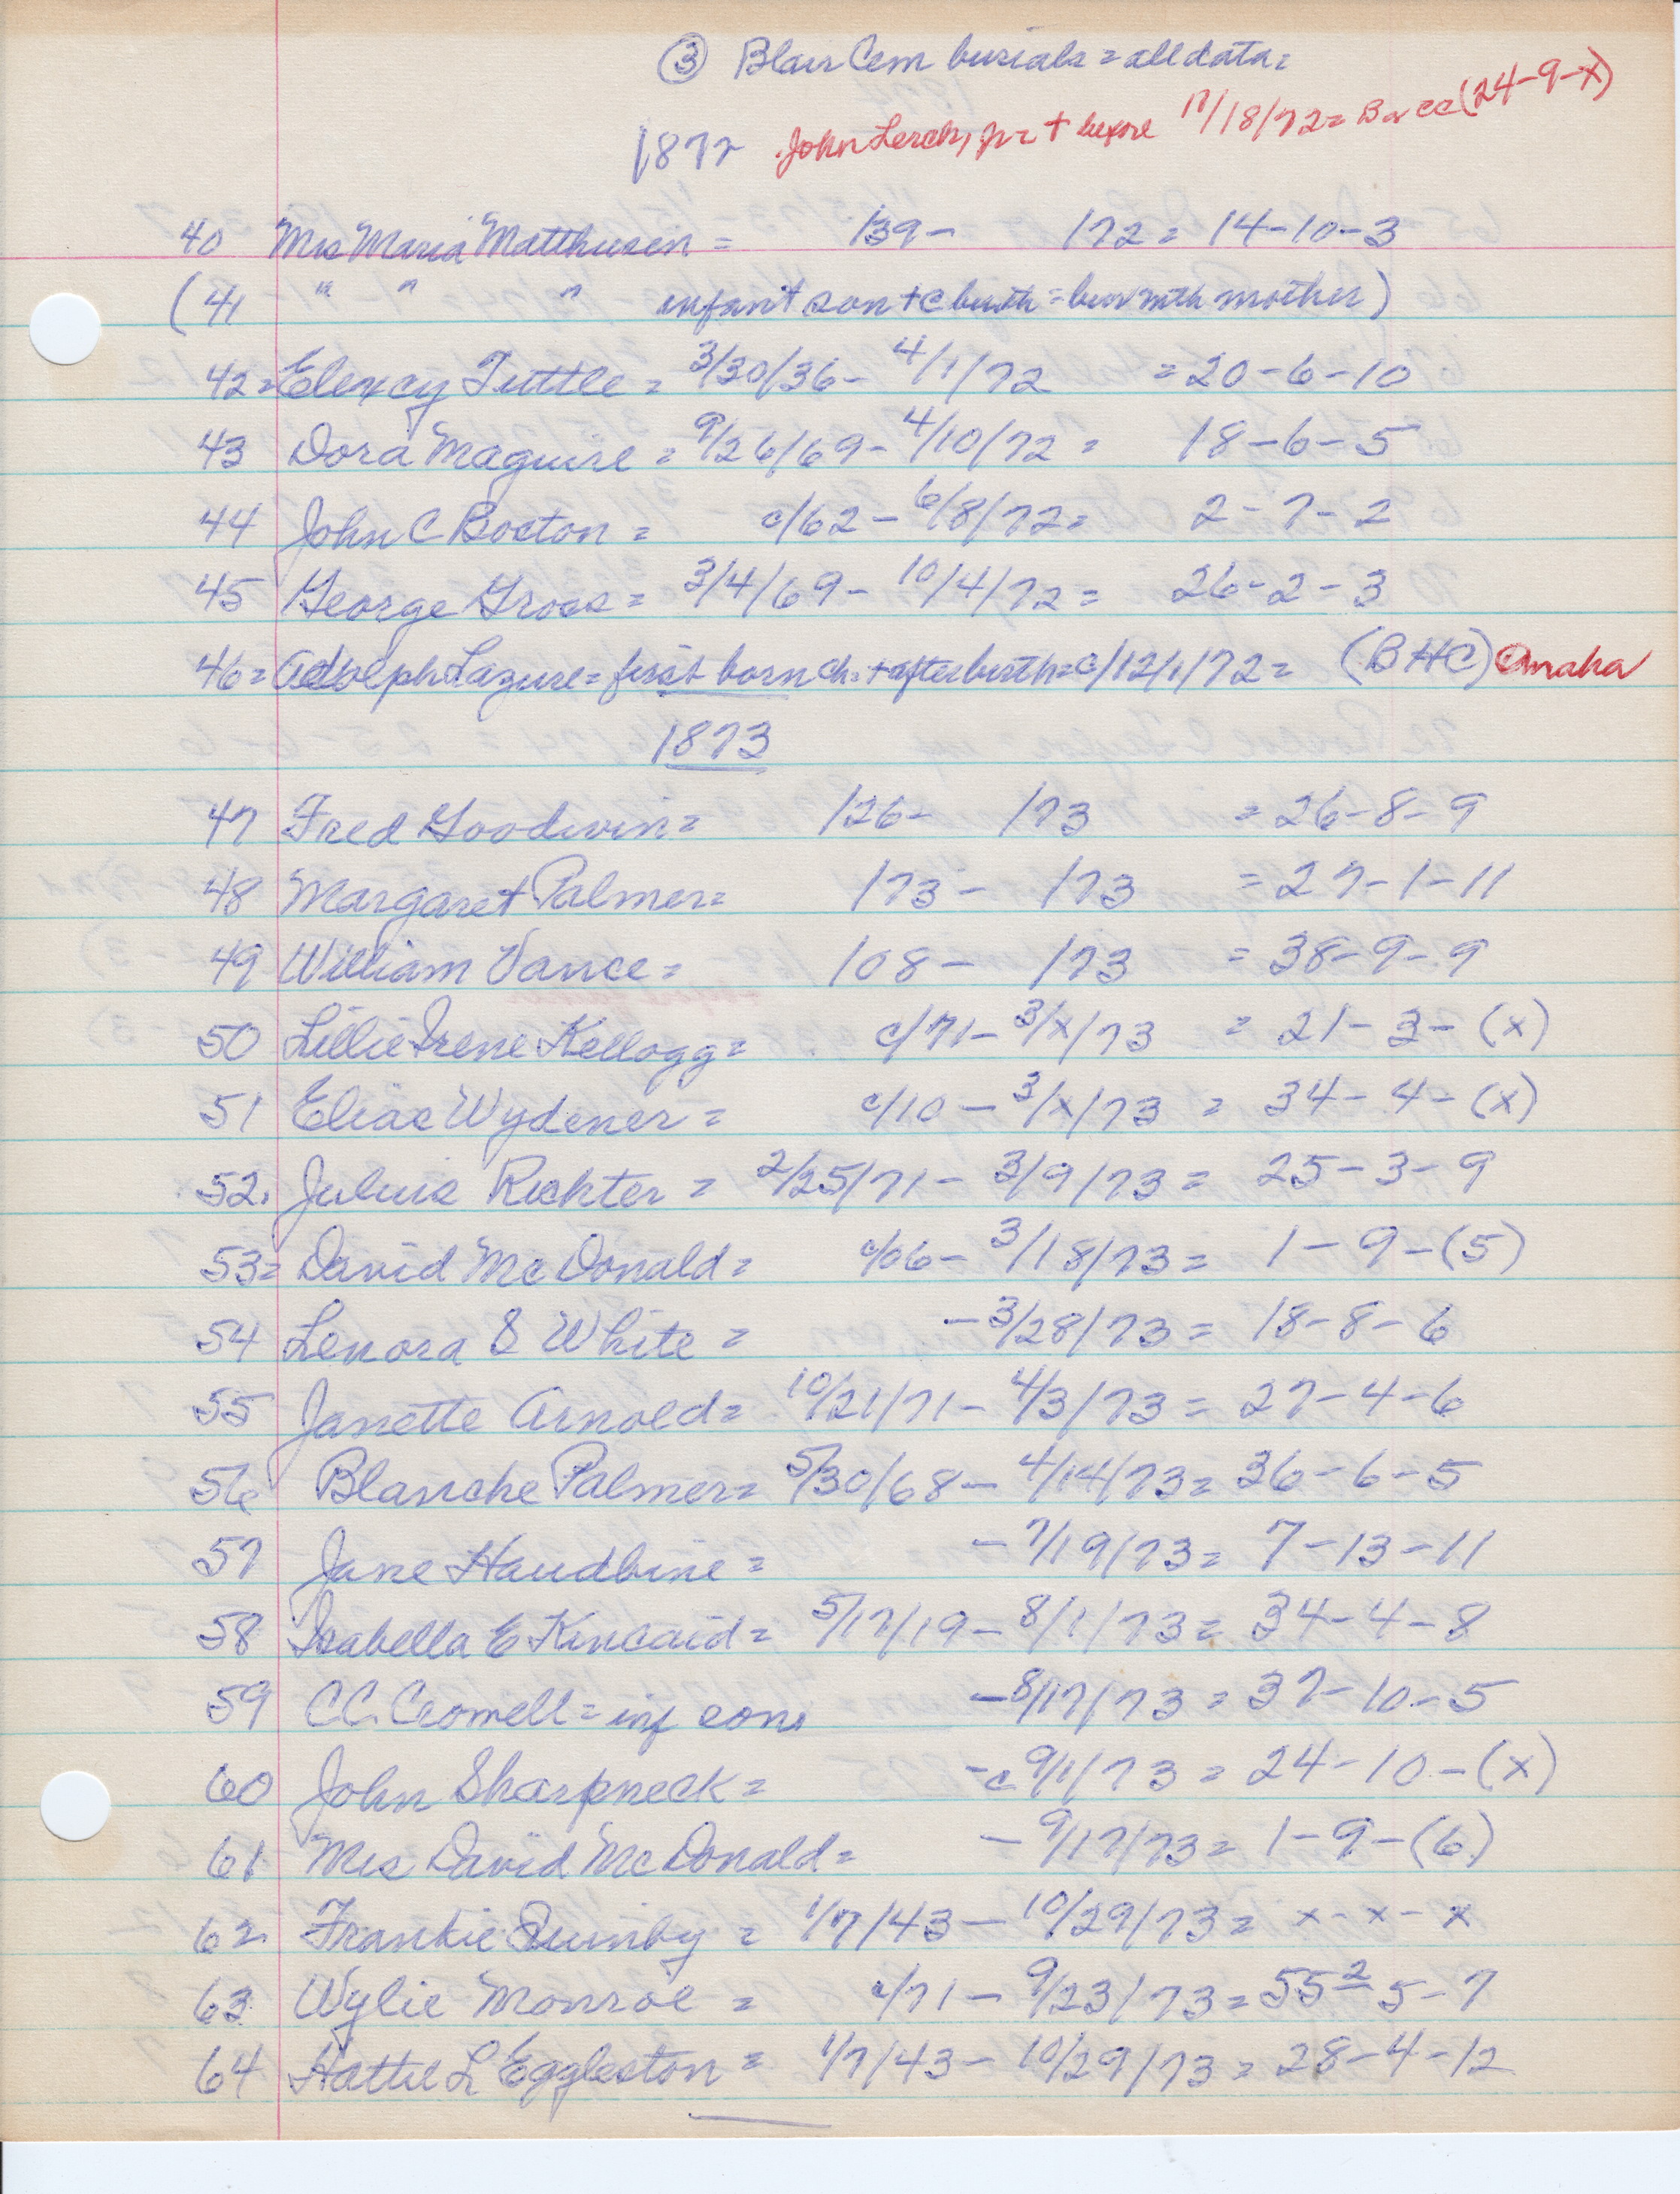 ③ Blair Cem burials = all data =
1872 John Lerch, Jr = + before 12/18/72 = B or CC (24-9-X)
40 Mrs Maria Matthiesen = /39 - /72 = 14-10-3
(41 " " " infant son + c birth = bur with mother)
42 = Elexcy Tuttle = 3/30/36 - 4/1/72 = 20-6-10
43 Dora Maguire = 9/26/69 - 4/10/72 = 18-6-5
44 John C Boston = c/62 - 6/8/72 = 2-7-2
45 George Gross = 3/4/69 - 10/4/72 = 26-2-3
46 = Adolph Lazure = first born ch. + after birth = c/12/1/72 = (BHC) Omaha
1873
47 Fred Goodwin = /26 - /73 = 26-8-9
48 Margaret Palmer = /73 - /73 = 27-1-11
49 William Vance = /08 - /73 = 38-9-9
50 Lillie Irene Kellogg = c/71 - 3/x/73 = 21-3-(x)
51 Elias Wydener = c/10 - 3/x/73 = 34-4-(x)
52. Julius Richter = 2/25/71 - 3/9/73 = 25-3-9
53 = David McDonald = c/06 - 3/18/73 = 1-9-(5)
54 Lenora S White = - 3/28/73 = 18-8-6
55 Janette Arnold = 10/21/71 - 4/3/73 = 27-4-6
56 Blanche Palmer = 5/30/68 - 4/14/73 = 36-6-5
57 Jane Haudbine = - 7/19/73 = 7-13-11
58 Isabella E Kincaid = 5/17/19 - 8/1/73 = 34-4-8
59 C.C. Cromell = inf son - 8/17/73 = 37-10-5
60 John Sharpneck = - c 9/1/73 = 24-10-(x)
61 Mrs David McDonald = - 9/17/73 = 1-9-(6)
62 Frankie Quimby = 1/7/43 - 10/29/73 = x-x-x
63 Wylie Monroe = c/71 - 9/23/73 = 55 2 - 5-7
64 Hattie L Eggleston = 1/7/43 - 10/29/73 = 28-4-12